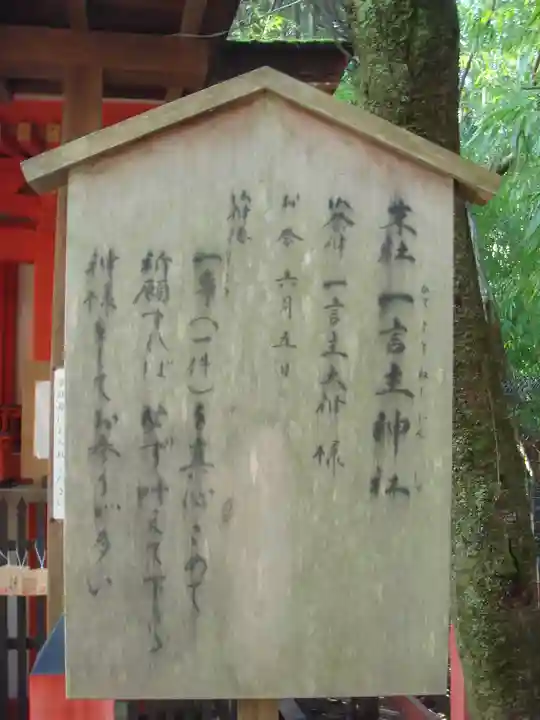 末社 一言主神社
ひとことぬしじんじゃ
祭神 一言主大神様
お祭 六月五日
御神徳
一事(一件)を真心こめて
祈願すれば必ず叶えて下さる
神様としてお参りが多い